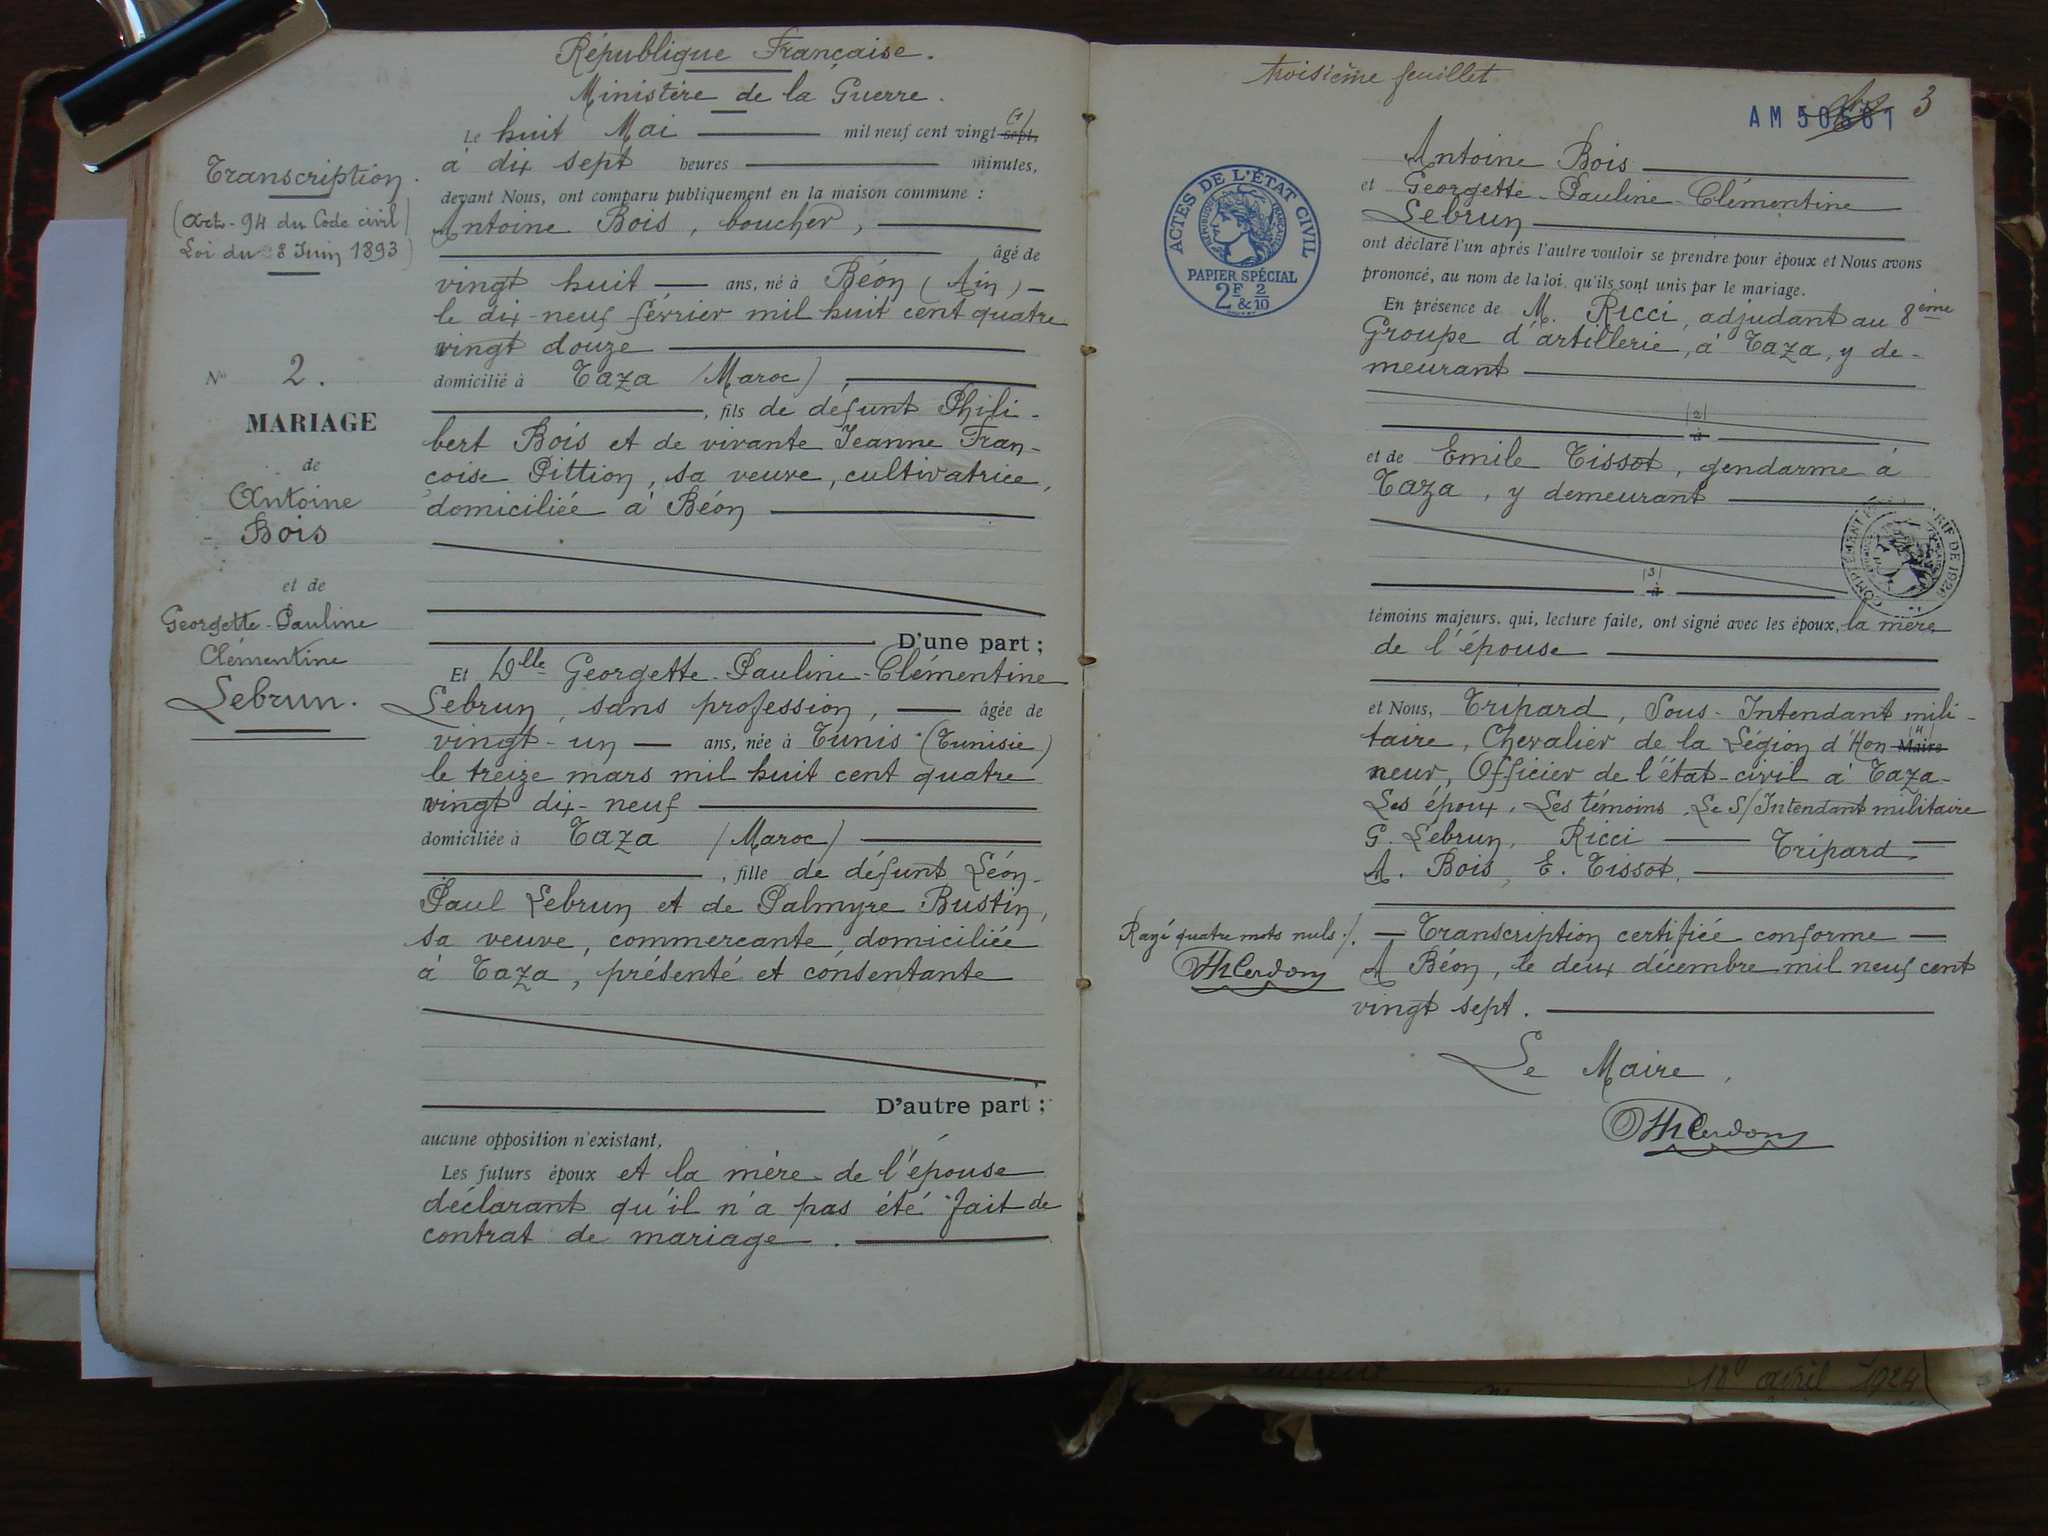 République Française.
Ministère de la Guerre.
Transcription.
(Art. 94 du Code civil)
Loi du 8 Juin 1893)
N° 2.
MARIAGE
de
Antoine
Bois
et de
Georgette-Pauline
Clémentine
Lebrun.
Le huit Mai mil neuf cent vingt sept. (1)
à dix sept heures minutes,
devant Nous, ont comparu publiquement en la maison commune :
Antoine Bois, boucher,
âgé de
vingt huit ans, né à Béon (Ain)
le dix-neuf février mil huit cent quatre
vingt douze
domicilié à Taza (Maroc),
, fils de défunt Phili-
bert Bois et de vivante Jeanne Fran-
çoise Pittion, sa veuve, cultivatrice,
domiciliée à Béon
D'une part ;
Et Dlle Georgette-Pauline-Clémentine
Lebrun, sans profession, âgée de
vingt-un ans, née à Tunis (Tunisie)
le treize mars mil huit cent quatre
vingt dix-neuf
domiciliée à Taza (Maroc)
, fille de défunt Léon-
Paul Lebrun et de Palmyre Bustin,
sa veuve, commercante domiciliée
à Taza, présenté et consentante
D'autre part ;
aucune opposition n'existant,
Les futurs époux et la mère de l'épouse
déclarant qu'il n'a pas été fait de
contrat de mariage.
troisième feuillet
AM 50561 3
ACTES DE L'ÉTAT CIVIL
RÉPUBLIQUE FRANÇAISE
PAPIER SPÉCIAL
2F & 2/10
Antoine Bois
et Georgette-Pauline-Clémentine
Lebrun
ont déclaré l'un après l'autre vouloir se prendre pour époux et Nous avons
prononcé, au nom de la loi, qu'ils sont unis par le mariage.
En présence de M. Ricci, adjudant au 8ème
Groupe d'artillerie, à Taza, y de-
meurant
(2)
et de Emile Tissot, gendarme à
Taza, y demeurant
(3)
témoins majeurs, qui, lecture faite, ont signé avec les époux, la mère
de l'épouse
et Nous, Tripard, Sous-Intendant mili-
taire, Chevalier de la Légion d'Hon Maire (4)
neur, Officier de l'état-civil à Taza-
Les époux, Les témoins, Le S/Intendant militaire
G. Lebrun, Ricci Tripard,
A. Bois, E. Tissot,
Rayé quatre mots nuls ./. Transcription certifiée conforme
A Béon, le deux décembre mil neuf cent
vingt sept.
Le Maire,
18 avril 1924